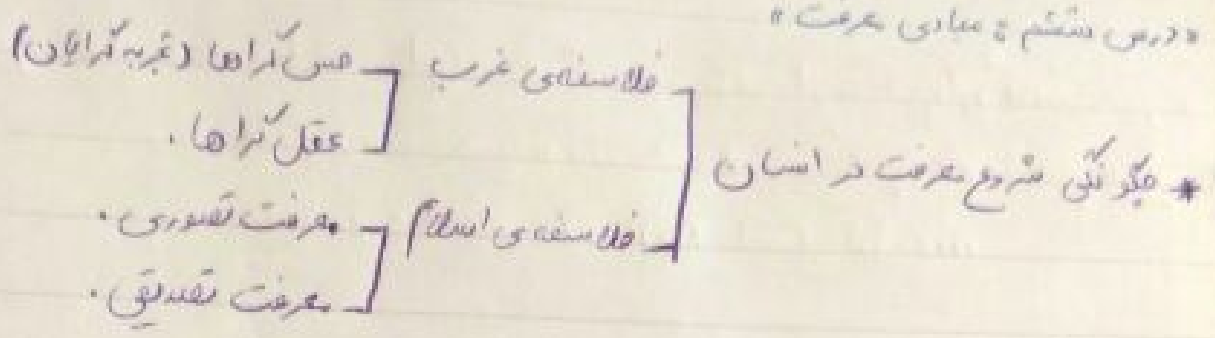 «درس ششم : مبادی معرفت»
* چگونگی شروع معرفت در انسان
فلاسفه‌ی غرب
حس گراها (تجربه گرایان)
عقل گراها.
فلاسفه‌ی اسلام
معرفت تصوری.
معرفت تصدیقی.